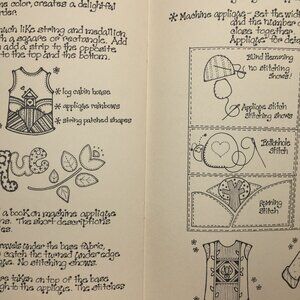 e color, creates a delightful
rder.
uch like string and medallion
th a square or rectangle. Add
add a strip to the opposite
to the top and the bottom.
* log cabin house
* applique rainbows
* string patched shapes
que
a book on machine applique
ns. The short descriptions
under the base fabric,
catch the turned under edge
que. No stitching shows.
are taken on top of the base
gh to the applique. The stitches
* Machine applique - set the width
and the number
close together
Applique for
Blind Hemming
no stitching
shows!
Applique stitch
stitching shows
Buttonhole
stitch
Running
stitch